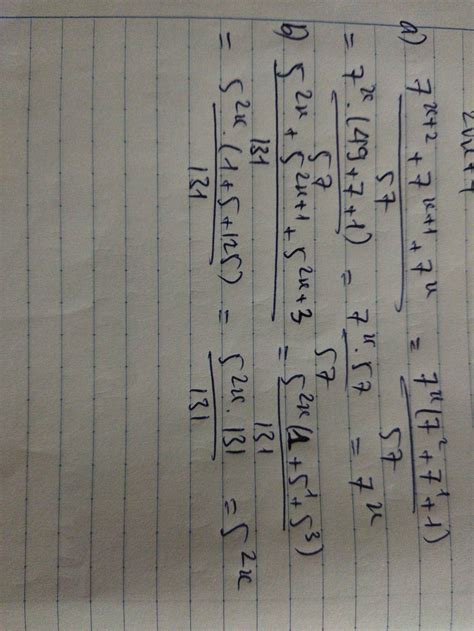 a) (7^{x+2} + 7^{x+1} + 7^x)/57 = (7^x(7^2 + 7^1 + 1))/57
= (7^x . (49 + 7 + 1))/57 = (7^x . 57)/57 = 7^x
b) (5^{2x} + 5^{2x+1} + 5^{2x+3})/131 = (5^{2x}(1 + 5^1 + 5^3))/131
= (5^{2x} . (1 + 5 + 125))/131 = (5^{2x} . 131)/131 = 5^{2x}